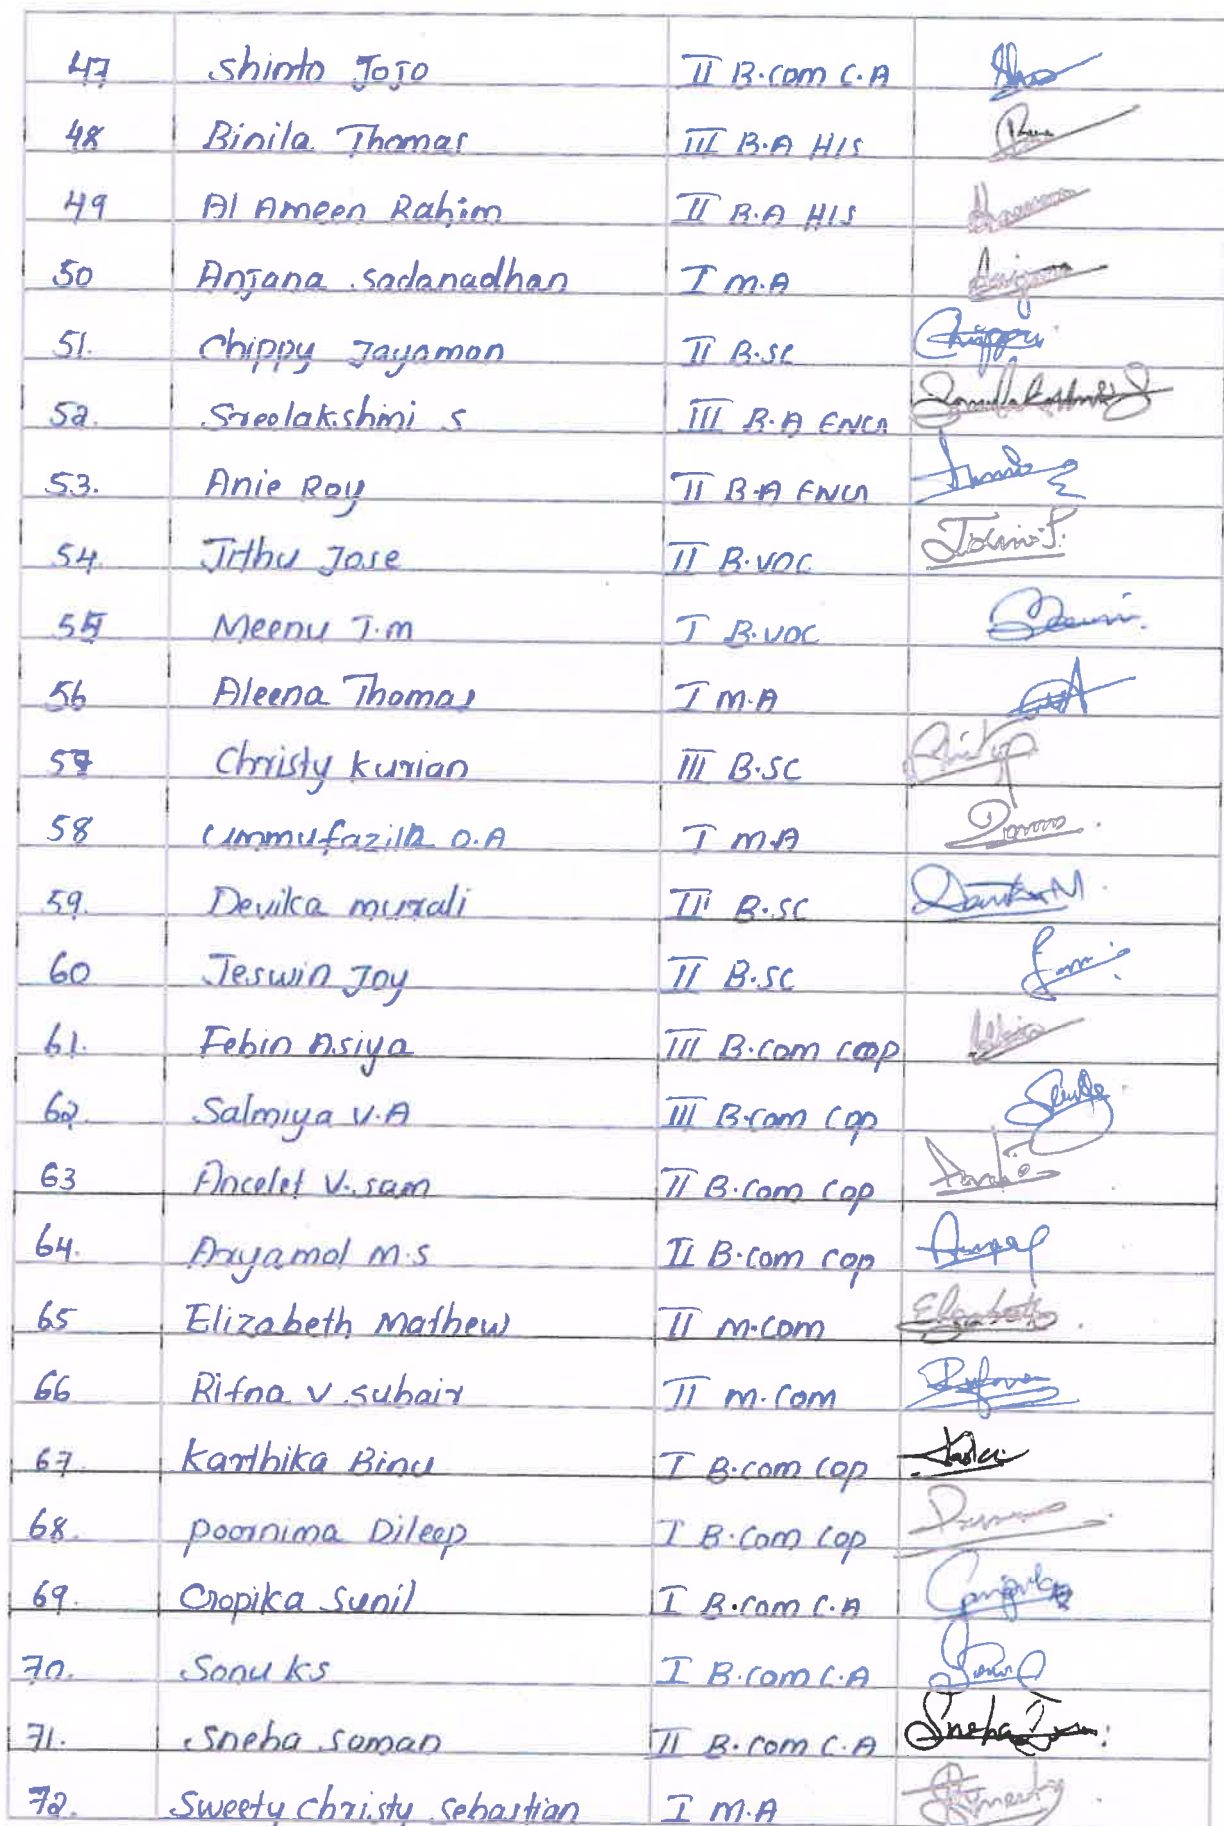 47 Shinto Jojo II B.com C.A
48 Binila Thomas III B.A HIS
49 Al Ameen Rahim II B.A HIS
50 Anjana Sadanadhan I M.A
51. Chippy Jayamon II B.sc
52. Sreelakshmi S III B.A
53. Anie Roy II B.A
54. Jithu Jose II B.voc
55 Meenu T.m I B.voc
56 Aleena Thomas I M.A
57 Christy Kurian III B.SC
58 Ummufazila O.A I M.A
59. Devika murali III B.SC
60 Jeswin Joy II B.SC
61. Febin Asiya III B.com coop
62. Salmiya V.A III B.com cop
63 Ancelet V.sam II B.com cop
64. Aryamol M.S II B.com cop
65 Elizabeth Mathew II M.com Elizabeth
66 Rifna V Suhair II M.com
67. Karthika Binu I B.com cop
68. Poornima Dileep I B.com cop
69. Gopika Sunil I B.com C.A
70. Sonu KS I B.com C.A
71. Sneha Soman II B.com C.A Sneha
72. Sweety Christy Sebastian I M.A